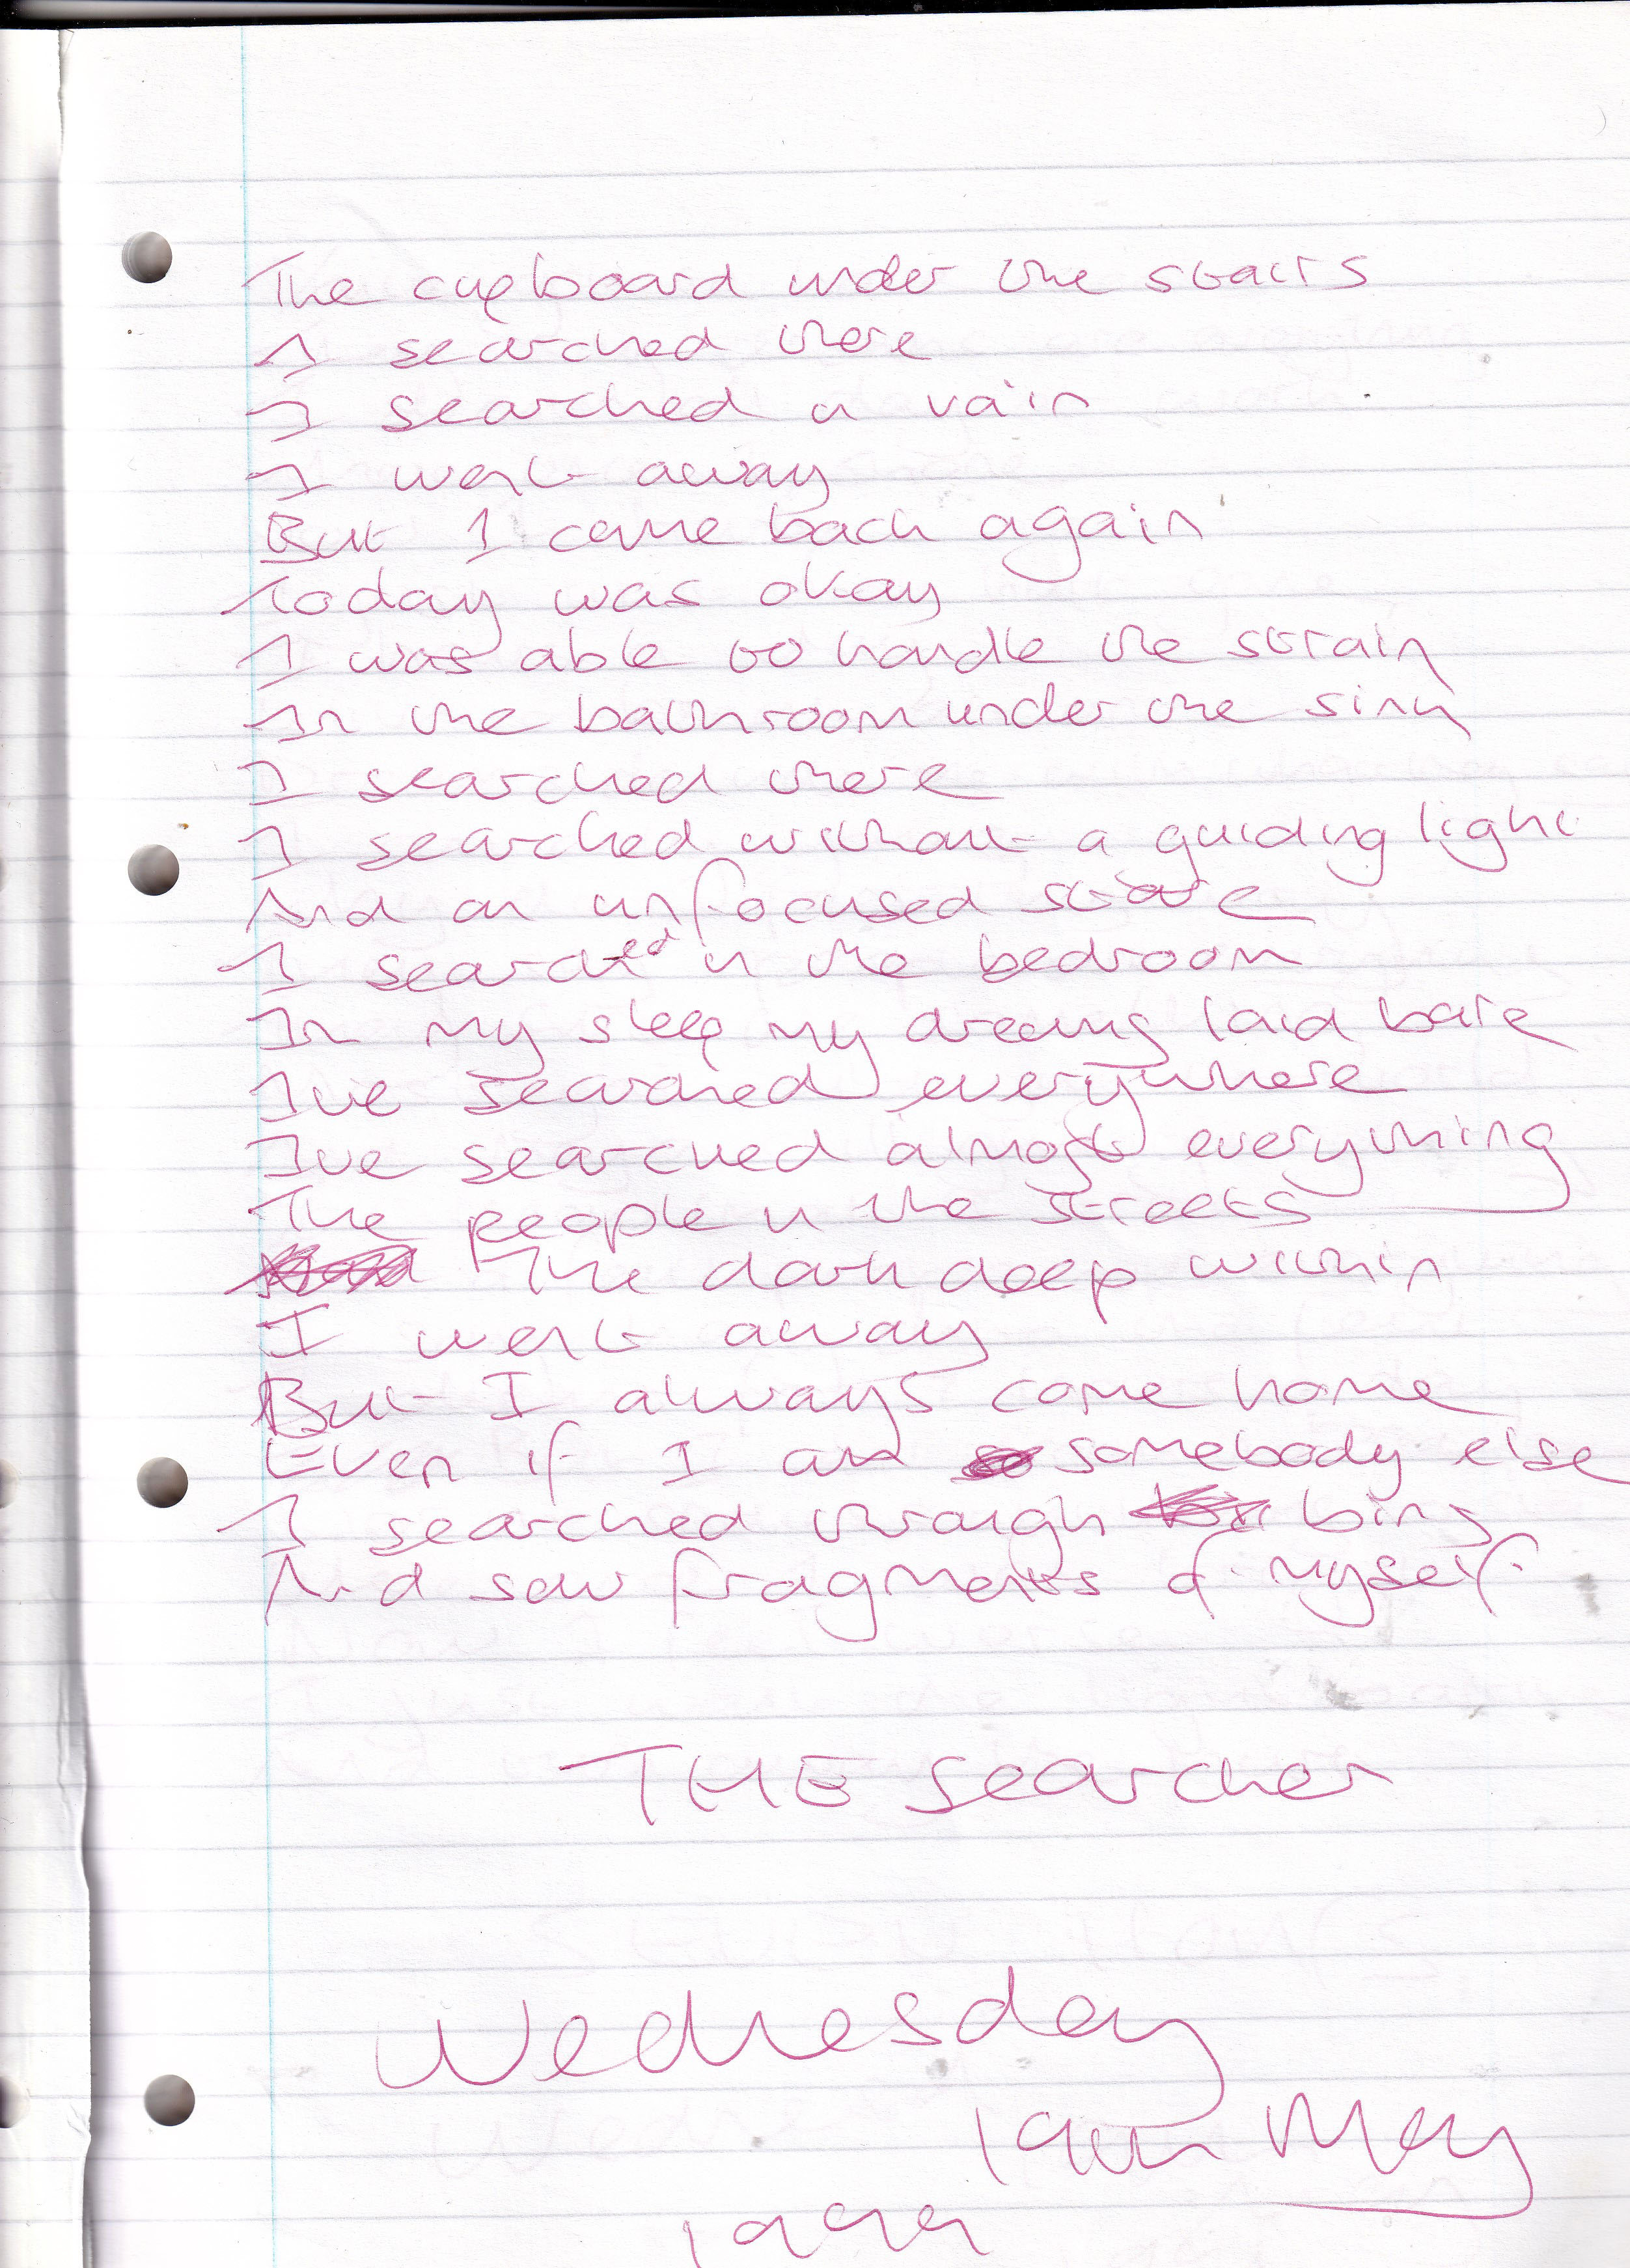 The cupboard under the stairs
I searched there
I searched in vain
I went away
But I came back again
Today was okay
I was able to handle the strain
In the bathroom under the sink
I searched there
I searched without a guiding light
And an unfocused stare
I searched in the bedroom
In my sleep my dreams laid bare
Ive searched everywhere
Ive searched almost everything
The people in the streets
The dark deep within
I went away
But I always come home
Even if I am somebody else
I searched through bins
And saw fragments of myself.
THE searcher
Wednesday
19th May
1999